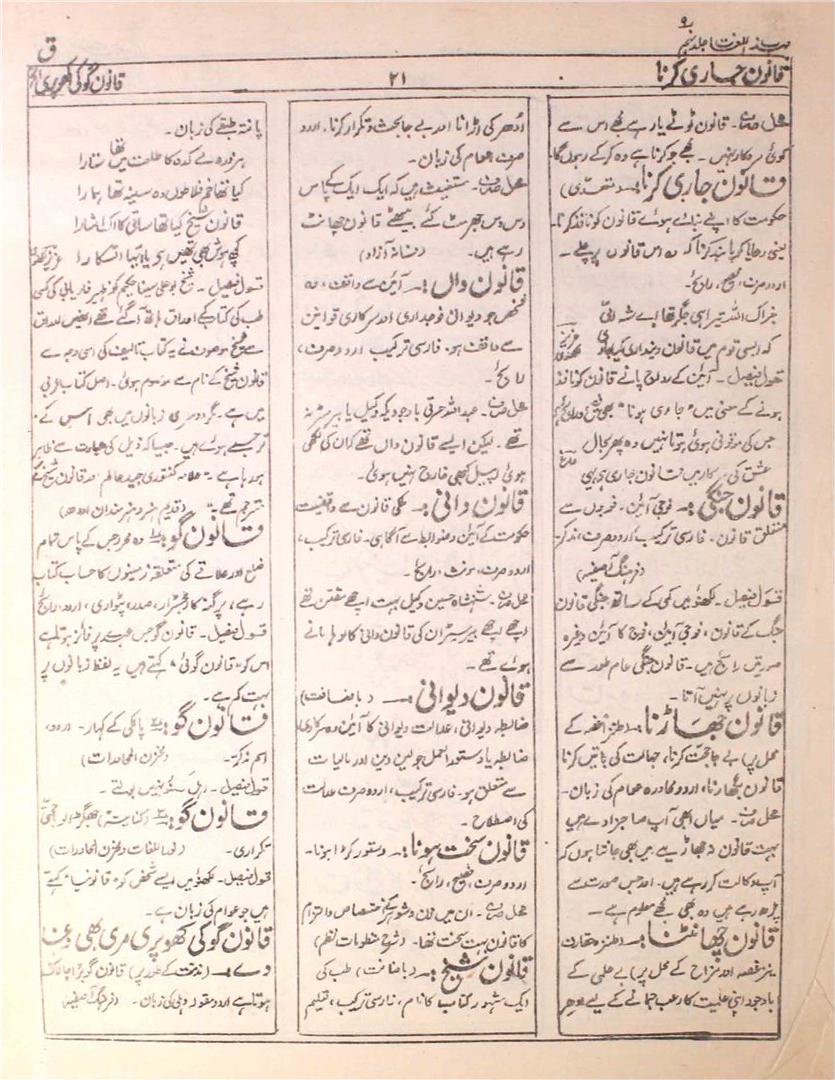 مہذب اللغات جلد نہم
۹
ق
قانون جاری کرنا
۲۱
قانون گو کی کھوپری
محل صرف۔ قانون ٹوٹے یا رہے مجھے اس سے
کوئی سروکار نہیں۔ مجھے جو کرنا ہے وہ کر کے رہوں گا۔
قانون جاری کرنا:۔ (متعدّی)
حکومت کا اپنے بنائے ہوئے قانون کو نافذ کرنا۔
یعنی رعایا کو پابند کرنا کہ وہ اس قانون پر چلے۔
اردو صرف، فصیح، رائج۔
جزاک اللہ تیرا ہی جگر تھا اے شہ
کہ ایسی قوم میں قانون دینداری کیا جاری
عزیز لکھنوی
قول فیصل۔ آئین کے رواج پانے قانون کو نافذ
ہونے کے معنی میں "جاری ہونا" بھی
جس کی موقوفی ہوئی ہوتا نہیں وہ پھر بحال
عشق کی سرکار میں قانون جاری ہے یہی
داغ
قانون جنگی:۔ فوجی آئین۔ فوجوں سے
متعلق قانون۔ فارسی ترکیب، اردو صرف، مذکر۔
(فرہنگ آصفیہ)
قول فیصل۔ لکھنؤ میں کمی کے ساتھ جنگی قانون
جنگ کے قانون، فوجی آئین، فوج کا آئین وغیرہ
صورتیں رائج ہیں۔ قانون جنگی عام طور سے
زبانوں پر نہیں آتا۔
قانون جھاڑنا:۔ (طنز و غصہ کے
محل پر) بے جا حجت کرنا، جہالت کی باتیں کرنا
قانون بگھارنا، اردو محاورہ عوام کی زبان۔
محل صرف۔ میاں ابھی آپ صاحبزادے ہیں
بہت قانون نہ جھاڑیے میں بھی جانتا ہوں کہ
آپ وکالت کر رہے ہیں۔ اور جس صورت سے
پڑھ رہے ہیں وہ بھی مجھے معلوم ہے۔
قانون چھانٹنا:۔ (طنز و حقارت
نیز غصہ اور مزاح کے محل پر) بے علمی کے
باوجود اپنی علمیت کا رعب جمانے کے لیے ادھر
اُدھر کی اڑانا اور بے جا بحث و تکرار کرنا۔ اردو
صرف، عوام کی زبان۔
محل صرف۔ مستغیث ہیں کہ ایک ایک کے پاس
دس دس جھرمٹ کئے بیٹھے قانون چھانٹ
رہے ہیں۔ (فسانۂ آزاد)
قانون داں:۔ آئین سے واقف، وہ
شخص جو دیوانی فوجداری اور سرکاری قوانین
سے واقف ہو۔ فارسی ترکیب، اردو صرف،
رائج۔
محل صرف۔ عبداللہ حرتی باوجودیکہ وکیل یا بیرسٹر نہ
تھے۔ لیکن ایسے قانون داں تھے کہ ان کی لکھی
ہوئی اپیل کبھی خارج نہیں ہوئی۔
قانون دانی:۔ ملکی قانون سے واقفیت
حکومت کے آئین و ضوابط سے آگاہی۔ فارسی ترکیب،
اردو صرف، مونث، رائج۔
محل صرف۔ شہنشاہ حسین وکیل بہت اچھے مقنن تھے
اچھے اچھے بیرسٹر ان کی قانون دانی کا لوہا مانے
ہوئے تھے۔
قانون دیوانی:۔ (باضافت)
ضابطہ دیوانی، عدالت دیوانی کا آئین و سرکاری
ضابطہ یا دستور العمل جو لین دین اور مالیات
سے متعلق ہو۔ فارسی ترکیب، اردو صرف عدالت
کی اصطلاح۔
قانون سخت ہونا:۔ دستور کڑا ہونا۔
اردو صرف، فصیح، رائج۔
محل صرف۔ ان میں زن و شوہر کے اختصاص و التزام
کا قانون بہت سخت تھا۔ (شرح منظومات نظم)
قانون شیخ:۔ (باضافت) طب کی
ایک مشہور کتاب کا نام، فارسی ترکیب، تعلیم
یافتہ طبقے کی زبان۔
ہر ذرہ مے کدہ کا ظلمت میں تھا ستارا
کیا تھا خم فلاطوں وہ سینہ تھا ہمارا
قانون شیخ کیا تھا ساقی کا اک اشارا
عزیز لکھنوی
قول فیصل۔ شیخ بو علی سینا حکیم کو ظہیر فاریابی کی کسی
طب کی کتاب کے اوراق ہاتھ آ گئے تھے انھیں اوراق
سے شیخ موصوف نے یہ کتاب تالیف کی اسی وجہ سے
قانون شیخ کے نام سے موسوم ہوئی۔ اصل کتاب عربی
میں ہے۔ مگر دوسری زبانوں میں بھی اس کے
ترجمے ہوئے ہیں۔ جیسا کہ ذیل کی عبارت سے ظاہر
ہو رہا ہے۔ "علامہ کنتوری جید عالم اور قانون شیخ کے
مترجم تھے۔" (قدیم ہنر و ہنرمندان اودھ)
قانون گو:۔ وہ محرر جس کے پاس تمام
ضلع اور علاقے کی متعلقہ زمینوں کا حساب کتاب
رہے، پرگنہ کا رجسٹرار، صدر، پٹواری، اردو، رائج
قول فیصل۔ قانون گو جس عہدے پر فائز ہوتا ہے
اس کو "قانون گوئی" کہتے ہیں یہ لفظ زبانوں پر
بہت کم ہے۔
قانون گو:۔ پالکی کے کہار۔ اردو،
اسم مذکر۔ (مخزن المحاورات)
قول فیصل۔ اہل لکھنؤ نہیں بولتے۔
قانون گو:۔ (کنایتہ) جھگڑالو حجتی
تکراری۔ (نور اللغات و مخزن المحاورات)
قول فیصل۔ لکھنؤ میں ایسے شخص کو "قانونیا" کہتے
ہیں جو عوام کی زبان ہے۔
قانون گو کی کھوپری مری بھی دغا
دے:۔ (مذمت کے طور پر) قانون گو بڑا چالاک
ہوتا ہے اردو مقولہ دہلی کی زبان۔ (فرہنگ آصفیہ)